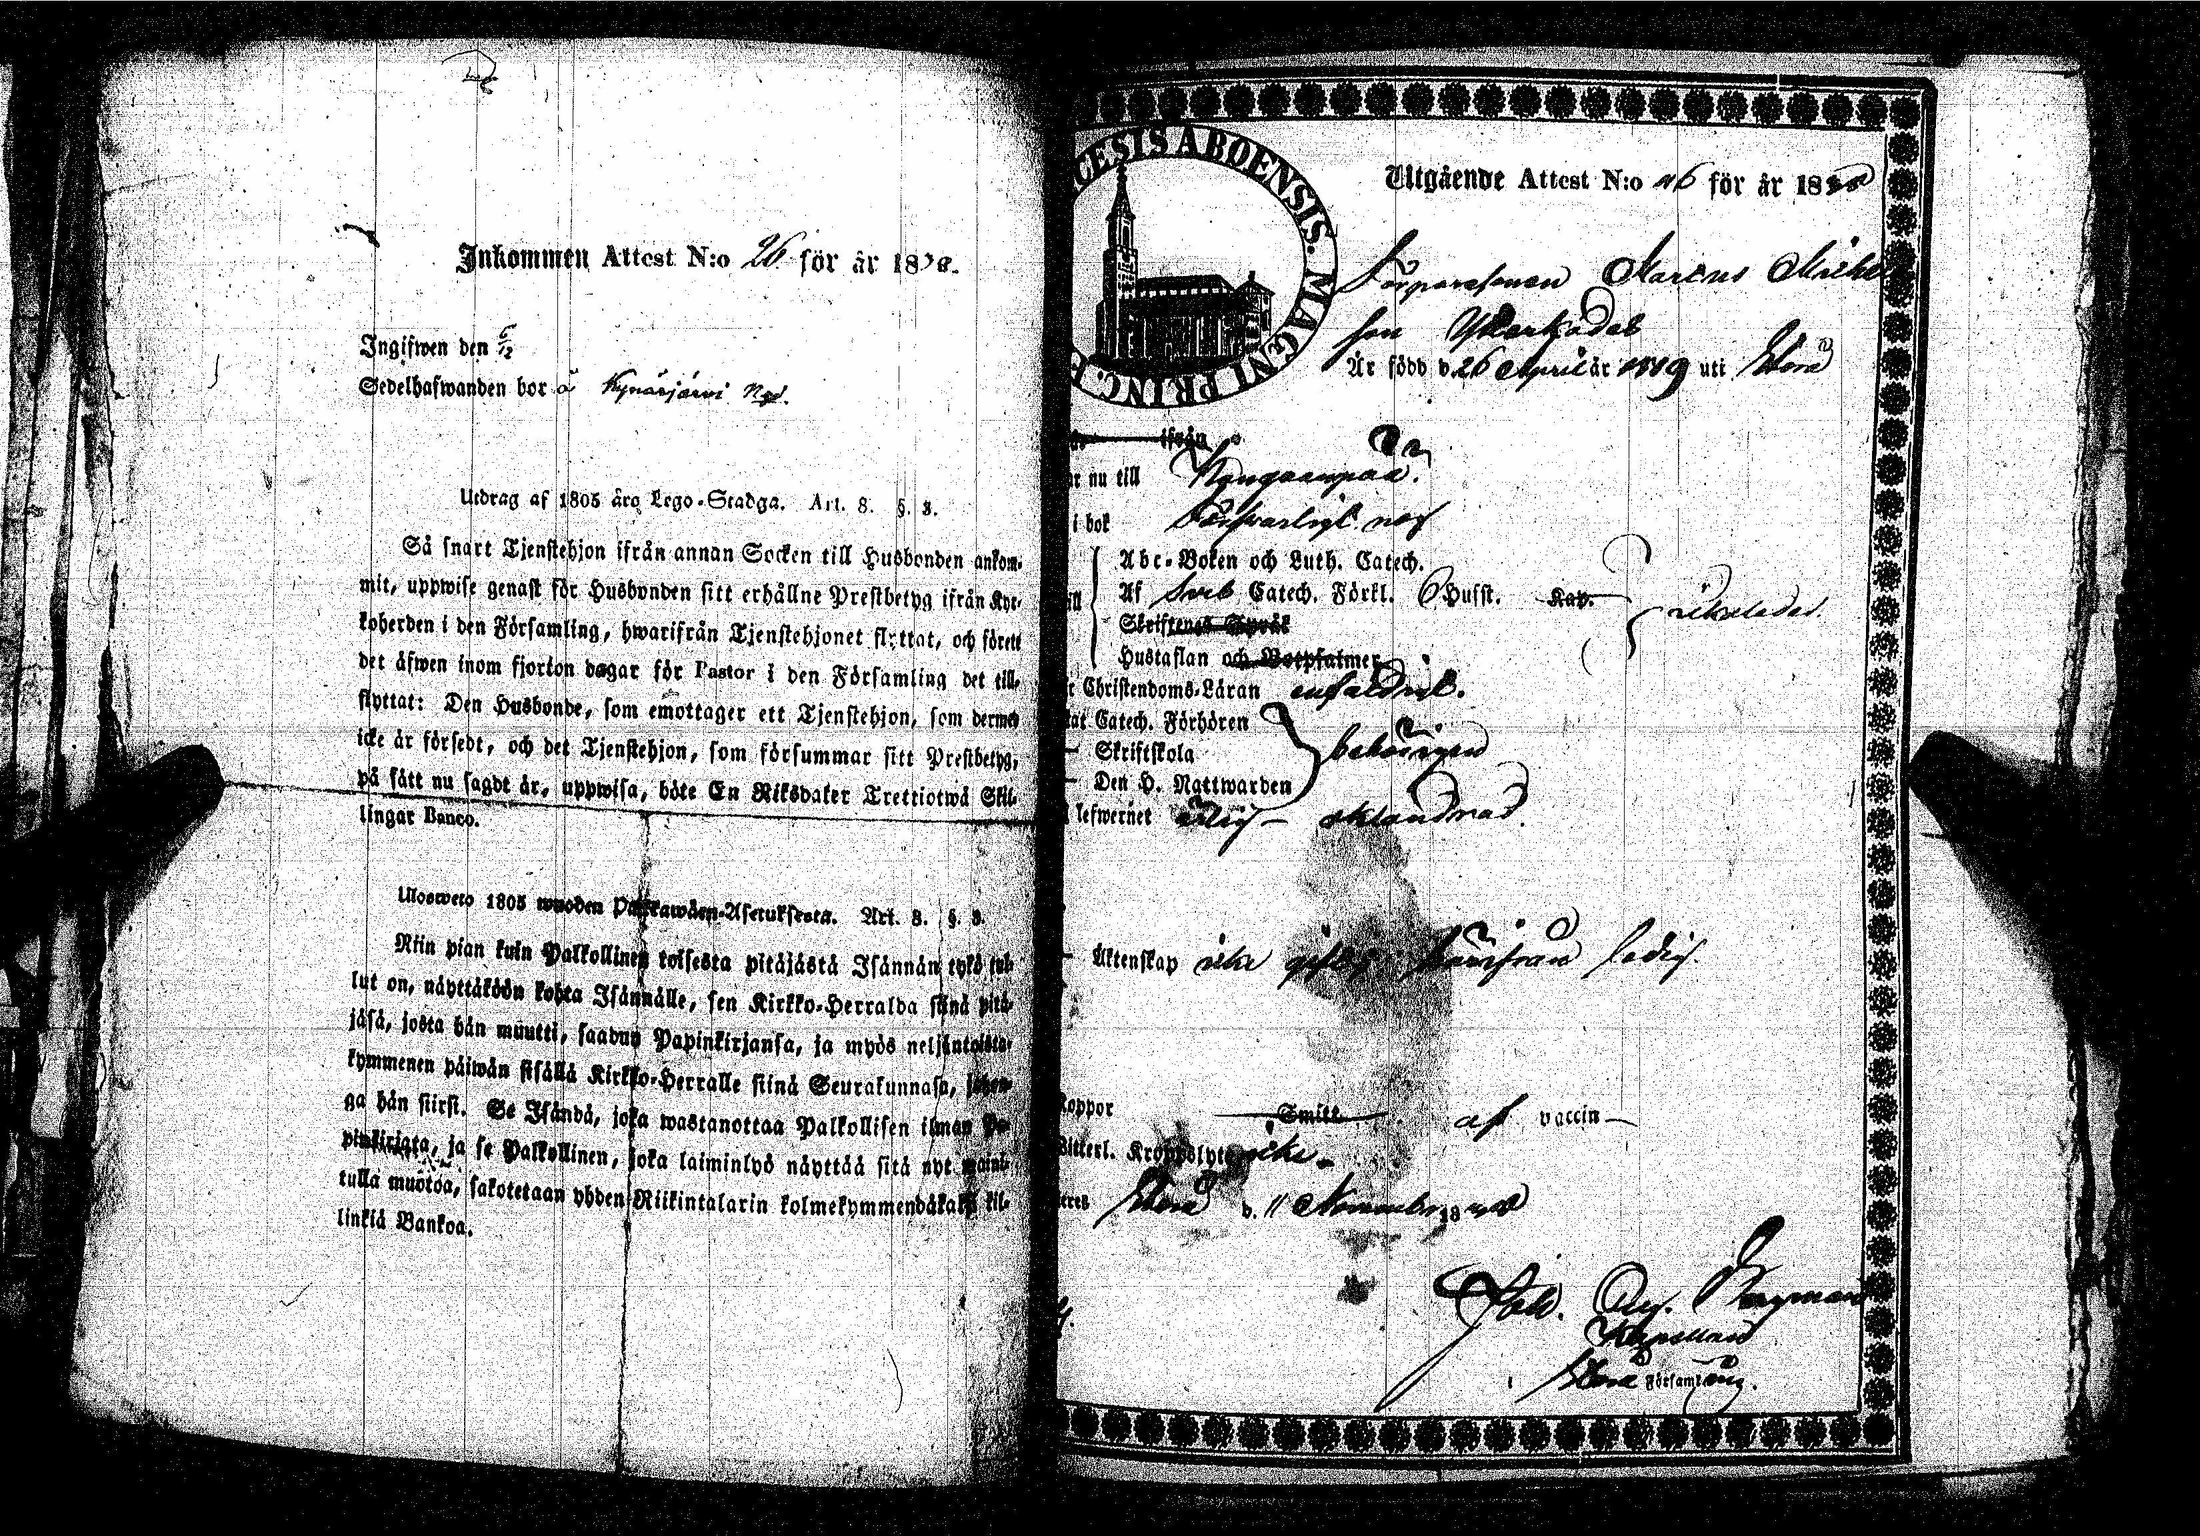 Inkommen Attest N:o 26. för år 18
Ingifwen den 6/12
Sedelhafwanden bor å Kynäsjärvi
Utdrag af 1805 års Lego-Stadga. Art. 8. §. 3.
Så snart Tjenstehjon ifrån annan Socken till Husbonden ankom-
mit, uppwise genast för Husbonden sitt erhållne Prestbetyg ifrån Kyr-
koherden i den Församling, hwarifrån Tjenstehjonet flyttat, och förete
det äfwen inom fjorton dagar för Pastor i den Församling det till-
flyttat: Den Husbonde, som emottager ett Tjenstehjon, som dermed
icke är försedt, och det Tjenstehjon, som försummar sitt Prestbetyg,
på sätt nu sagdt är, uppwisa, böte En Riksdaler Trettiotwå Skil-
lingar Banco.
Ulosweto 1805 wuoden Palkawäen-Asetuksesta. Art. 8. §. 3.
Niin pian kuin Palkollinen toisesta pitäjästä Isännän tykö tul-
lut on, näyttäköön kohta Isännälle, sen Kirkko-Herralda siinä pitä-
jäsä, josta hän muutti, saadun Papinkirjansa, ja myös neljäntoista-
kymmenen päiwän sisällä Kirkko-Herralle siinä Seurakunnasa, johon-
ga hän siirsi. Se Isändä, joka wastanottaa Palkollisen ilman Pa-
pinkirjata, ja se Palkollinen, joka laiminlyö näyttää sitä nyt maini-
tulla muotoa, sakotetaan yhden Riikintalarin kolmekymmendäkaksi kil-
linkiä Bankoa.
CESIS ABOENSIS. MAGNI PRINC. F
Utgående Attest N:o 46 för år 18
Marcus Mickel
son
Är född d. 26 April år 1819 uti
ifrån
nu till Kangaanpää.
i bok Förswarligt
Abc-Boken och Luth. Catech.
Af Sveb Catech. Förkl. 6 Hufst. Kap.
Skriftenes Språk
Hustaflan och Botpsalmer
Christendoms-Läran enfaldigt.
Catech. Förhören
Skriftskola behörigen
Den H. Nattwarden
lefwernet ärlig oklandrad.
Äktenskap icke gift, härifrån ledig.
Koppor Smitt af vaccin
Witterl. Kroppslyte icke.
d. 11 November 18
Joh. Aug. Bergman
Kapellan
Församling.